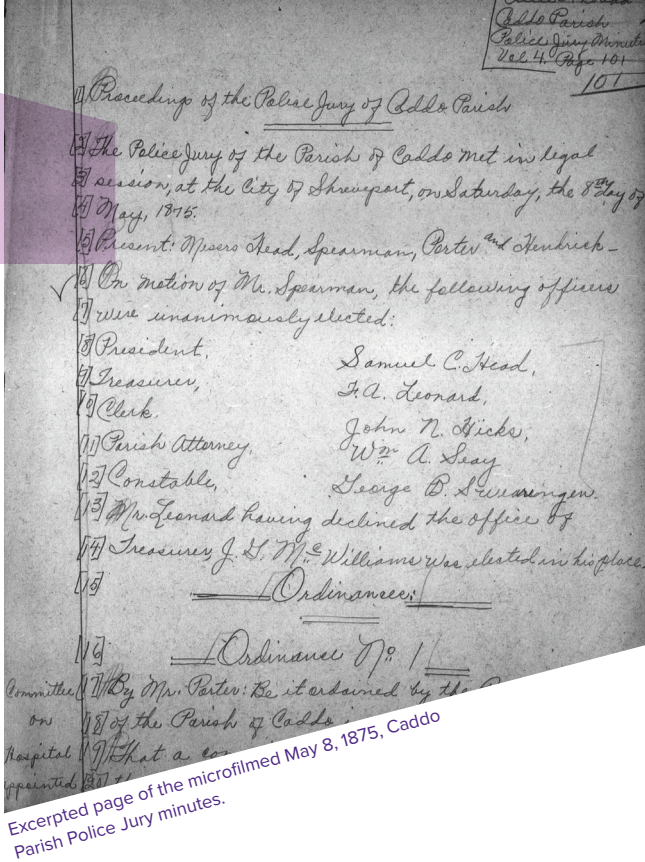 Caddo Parish
Police Jury Minutes
Vol. 4. Page 101
101
[1] Proceedings of the Police Jury of Caddo Parish
[2] The Police Jury of the Parish of Caddo met in legal
[3] session, at the City of Shreveport, on Saturday, the 8th day of
[4] May, 1875.
[5] Present: Messrs Head, Spearman, Porter and Hendrick-
[6] On motion of Mr. Spearman, the following officers
[7] were unanimously elected:
[8] President, Samuel C. Head,
[9] Treasurer, F. A. Leonard,
[10] Clerk. John N. Hicks,
[11] Parish Attorney, Wm A. Seay
[12] Constable, George B. Swearingen.
[13] Mr. Leonard having declined the office of
[14] Treasurer, J. G. McWilliams was elected in his place.
[15] Ordinances:
[16] Ordinance No. 1
Committee [17] By Mr. Porter: Be it ordained by the
on [18] of the Parish of Caddo
Hospital [19] That a
appointed [20]
Excerpted page of the microfilmed May 8, 1875, Caddo
Parish Police Jury minutes.